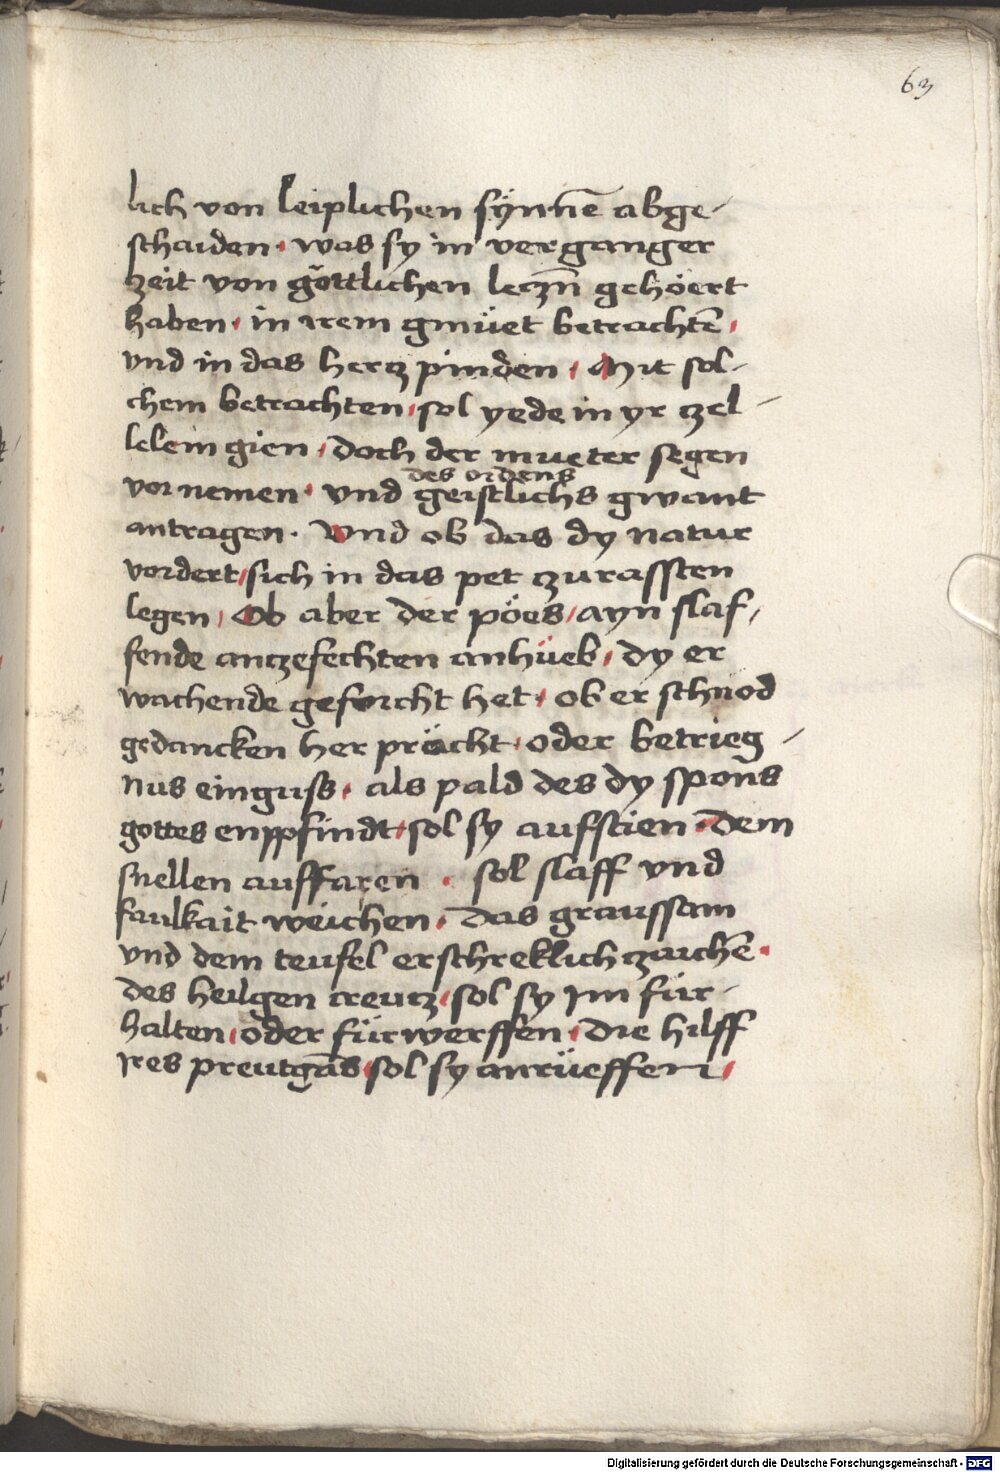 63
lich von leiplichen sÿnnē abge-
schaiden · was sy in verganger
zeit von göttlichen leczn̄ gehöert
haben · in irem gmüet betrachtē ·
vnd in das hercz pinden · Mit sol-
chem betrachten · sol yede in yr zel-
lelein gien · doch der mueter segen
des ordens
vor nemen · vnd geistlichs gwant
antragen · Vnd ob das dy natur
vordert / sich in das pet zu rassten
legen / Ob aber der pöes / ayn slaf-
fende anczefechten anhüeb · dy er
wachende geforcht het · ob er schnöd
gedancken her prächt · oder betrieg-
nus einguss · als pald des dy spons
gottes enppfindt / sol sy aufstien · dem
snellen auffaren · sol slaff vnd
faulkait weichen · das graussam
vnd dem teufel erschreklich zaichē ·
des heilgen creucz / sol sy im für-
halten / oder fürwerffen · die hilff
ires preutgās / sol sy anrüeffen /
Digitalisierung gefördert durch die Deutsche Forschungsgemeinschaft - DFG